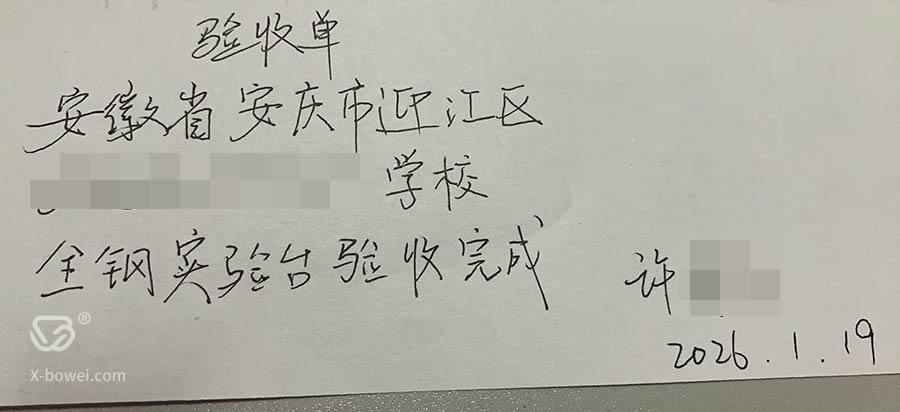 验收单
安徽省安庆市迎江区
学校
全钢实验台验收完成
许
2026.1.19
®
X-bowei.com